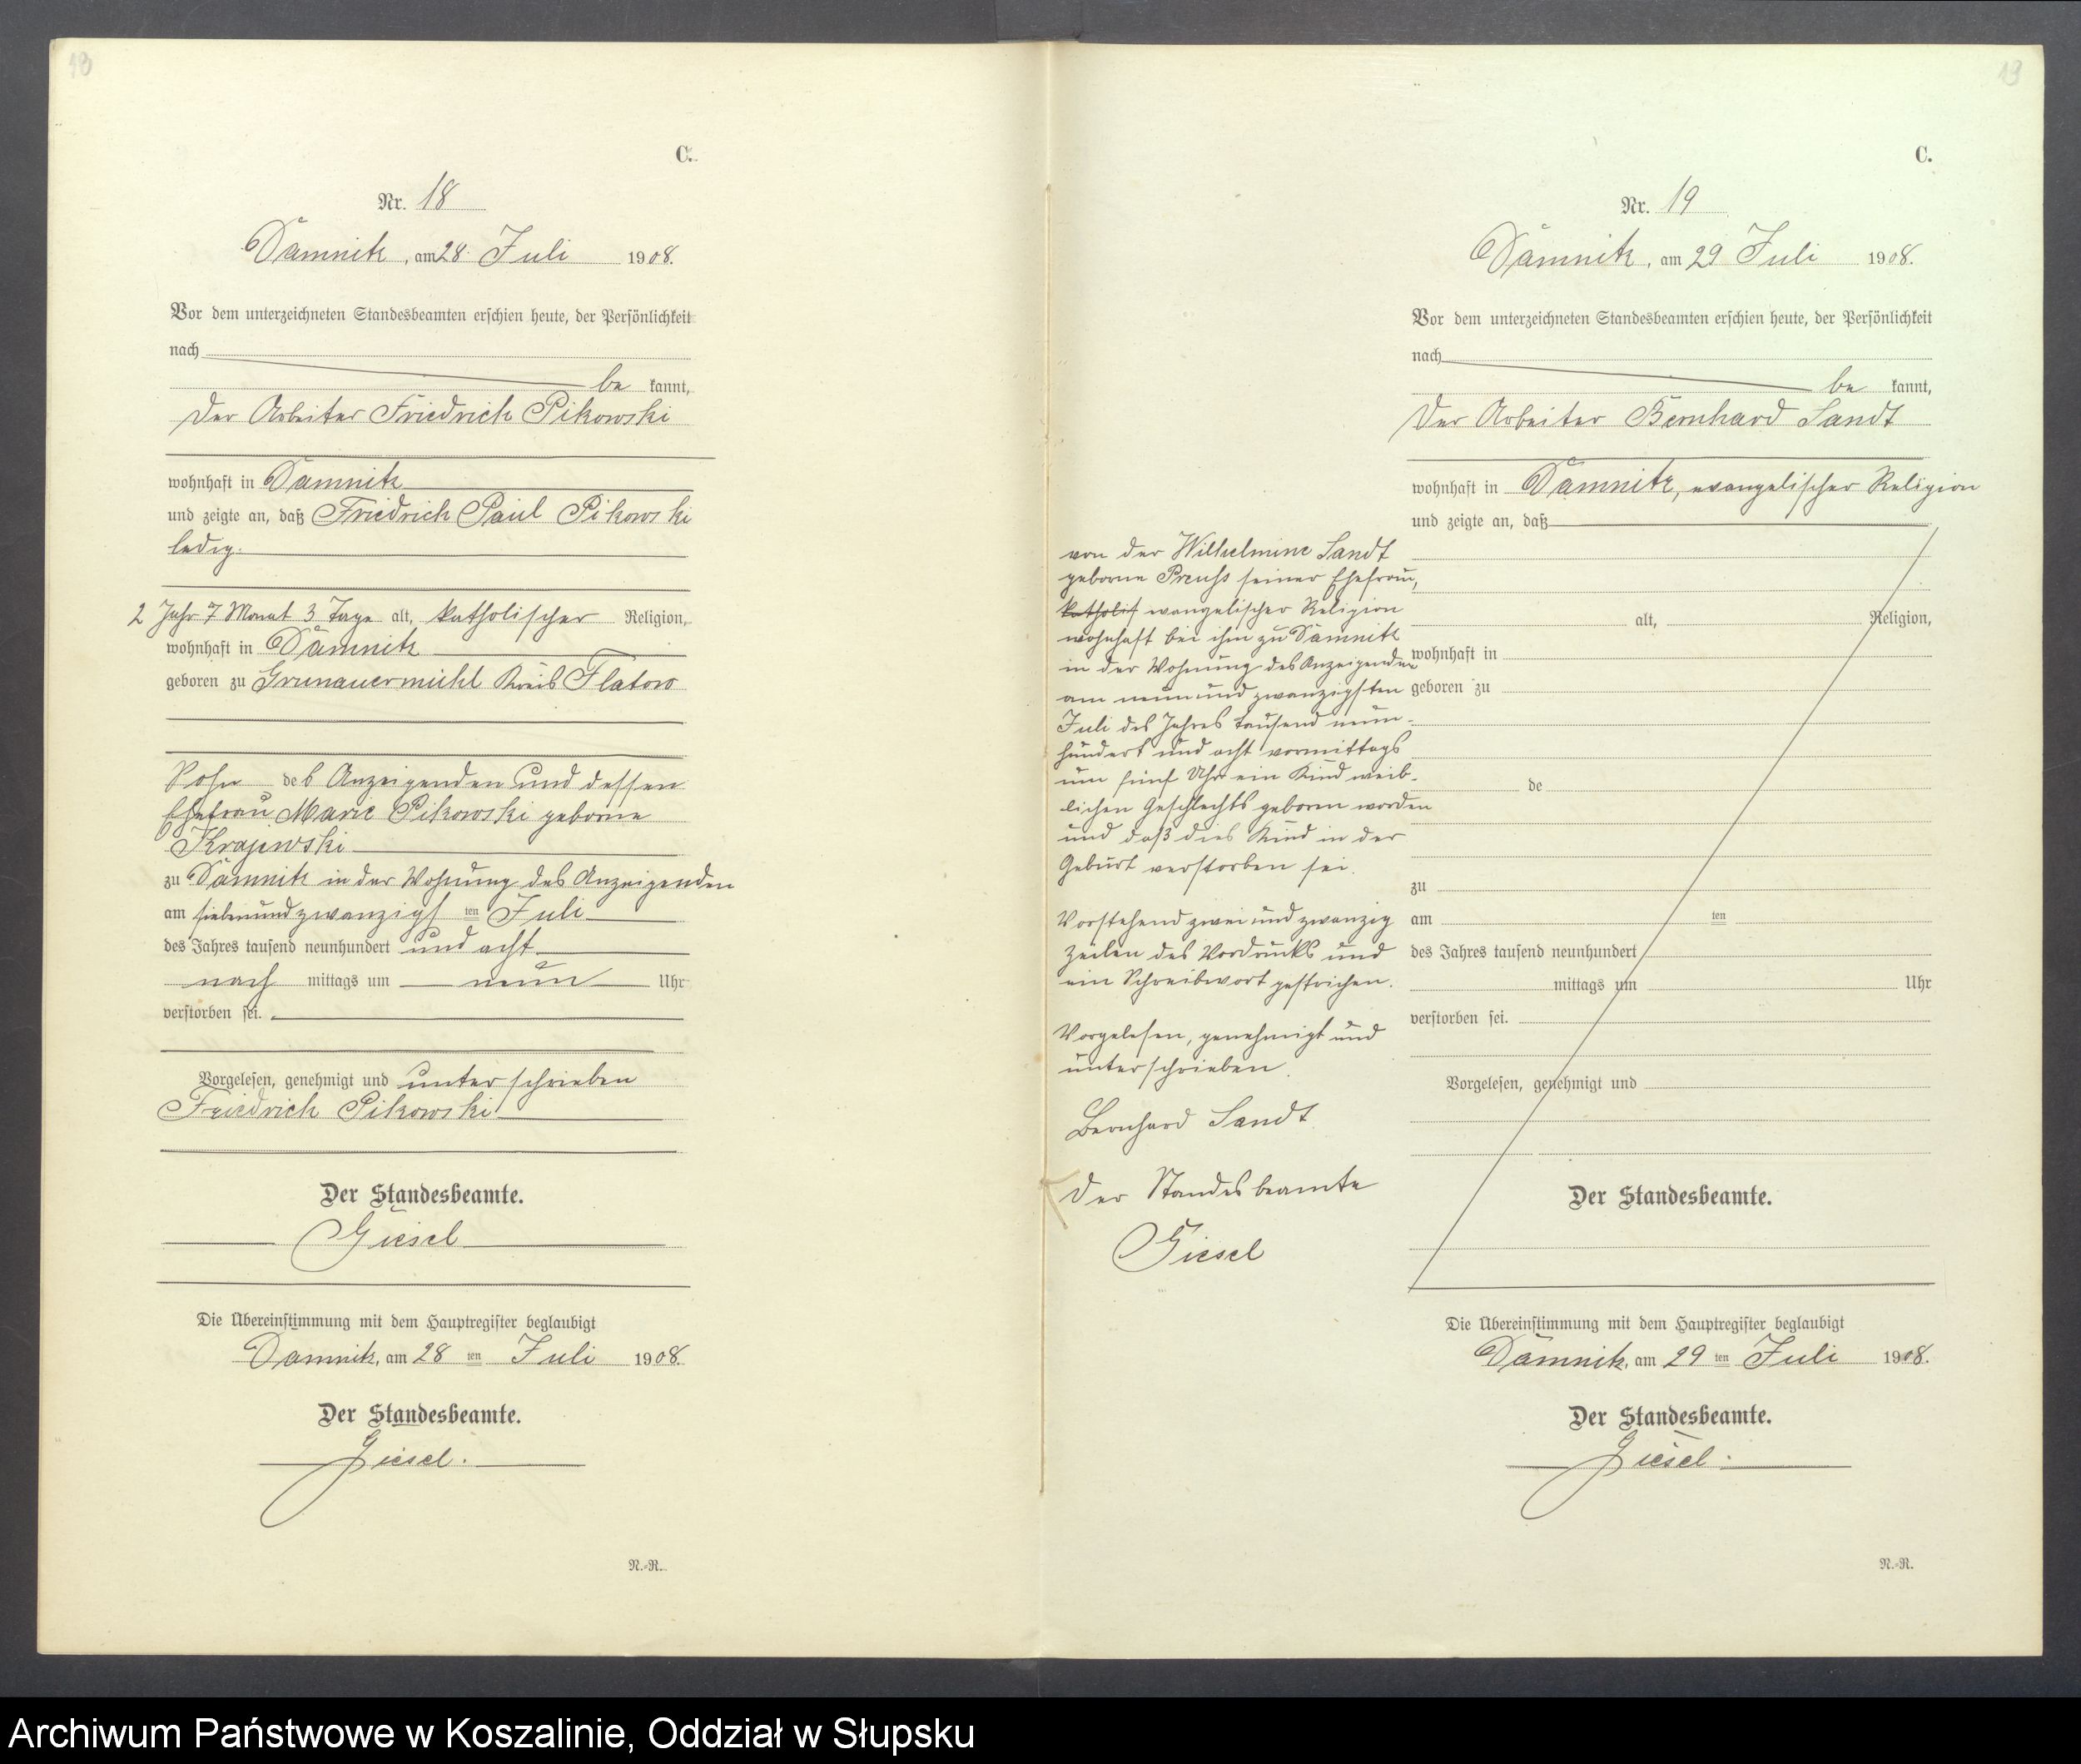 18
C.
Nr. 18
Damnitz, am 28. Juli 1908.
Vor dem unterzeichneten Standesbeamten erschien heute, der Persönlichkeit
nach
be kannt,
der Arbeiter Friedrich Pikowski
wohnhaft in Damnitz
und zeigte an, daß Friedrich Paul Pikowski
ledig.
2 Jahr 7 Monat 3 Tage alt, katholischer Religion,
wohnhaft in Damnitz
geboren zu Grunauermühl Kreis Flatow
Sohn des Anzeigenden und dessen
Ehefrau Marie Pikowski geborne
Krajewski
zu Damnitz in der Wohnung des Anzeigenden
am siebenundzwanzigsten Juli
des Jahres tausend neunhundert und acht
nach mittags um neun Uhr
verstorben sei.
Vorgelesen, genehmigt und unterschrieben
Friedrich Pikowski
Der Standesbeamte.
Giesel
Die Übereinstimmung mit dem Hauptregister beglaubigt
Damnitz, am 28 ten Juli 1908.
Der Standesbeamte.
Giesel.
N.-R.
19
C.
Nr. 19
Damnitz, am 29 Juli 1908.
Vor dem unterzeichneten Standesbeamten erschien heute, der Persönlichkeit
nach
be kannt,
der Arbeiter Bernhard Sandt
wohnhaft in Damnitz, evangelischer Religion
und zeigte an, daß
von der Wilhelmine Sandt
geborne Preuhs seiner Ehefrau,
katholis evangelischer Religion
wohnhaft bei ihm zu Damnitz
in der Wohnung des Anzeigenden
am neunundzwanzigsten
Juli des Jahres tausend neun-
hundert und acht vormittags
um fünf Uhr ein Kind weib-
lichen Geschlechts geboren worden
und daß dies Kind in der
Geburt verstorben sei.
Vorstehend zwei und zwanzig
Zeilen des Vordrucks und
ein Schreibwort gestrichen.
Vorgelesen, genehmigt und
unterschrieben.
Bernhard Sandt
Der Standesbeamte
Giesel
alt, Religion,
wohnhaft in
geboren zu
de
zu
am ten
des Jahres tausend neunhundert
mittags um Uhr
verstorben sei.
Vorgelesen, genehmigt und
Der Standesbeamte.
Die Übereinstimmung mit dem Hauptregister beglaubigt
Damnitz, am 29 ten Juli 1908.
Der Standesbeamte.
Giesel.
N.-R.
Archiwum Państwowe w Koszalinie, Oddział w Słupsku